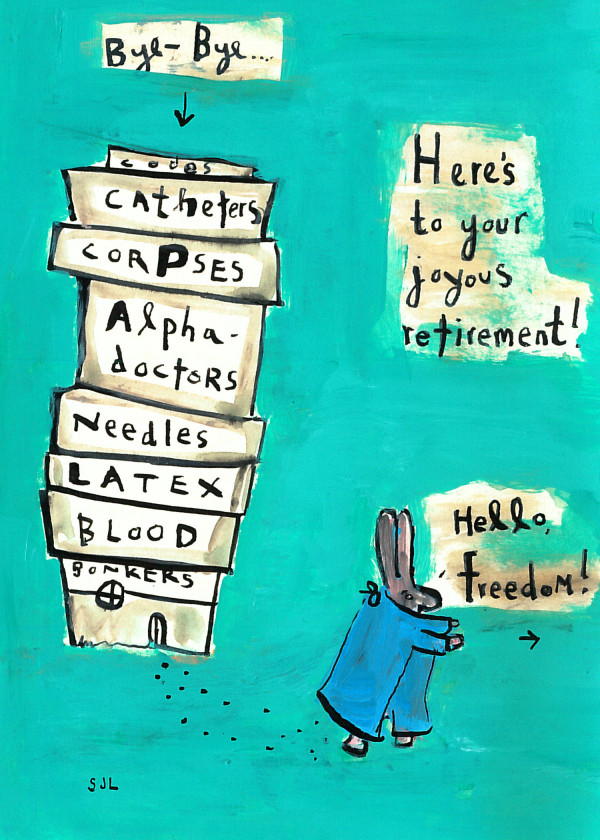 Bye-Bye...
Here's
to your
joyous
retirement!
codes
CATheters
CORPSES
Alpha-
doctors
Needles
LATEX
BLOOD
BONKERS
Hello,
freedom!
SJL